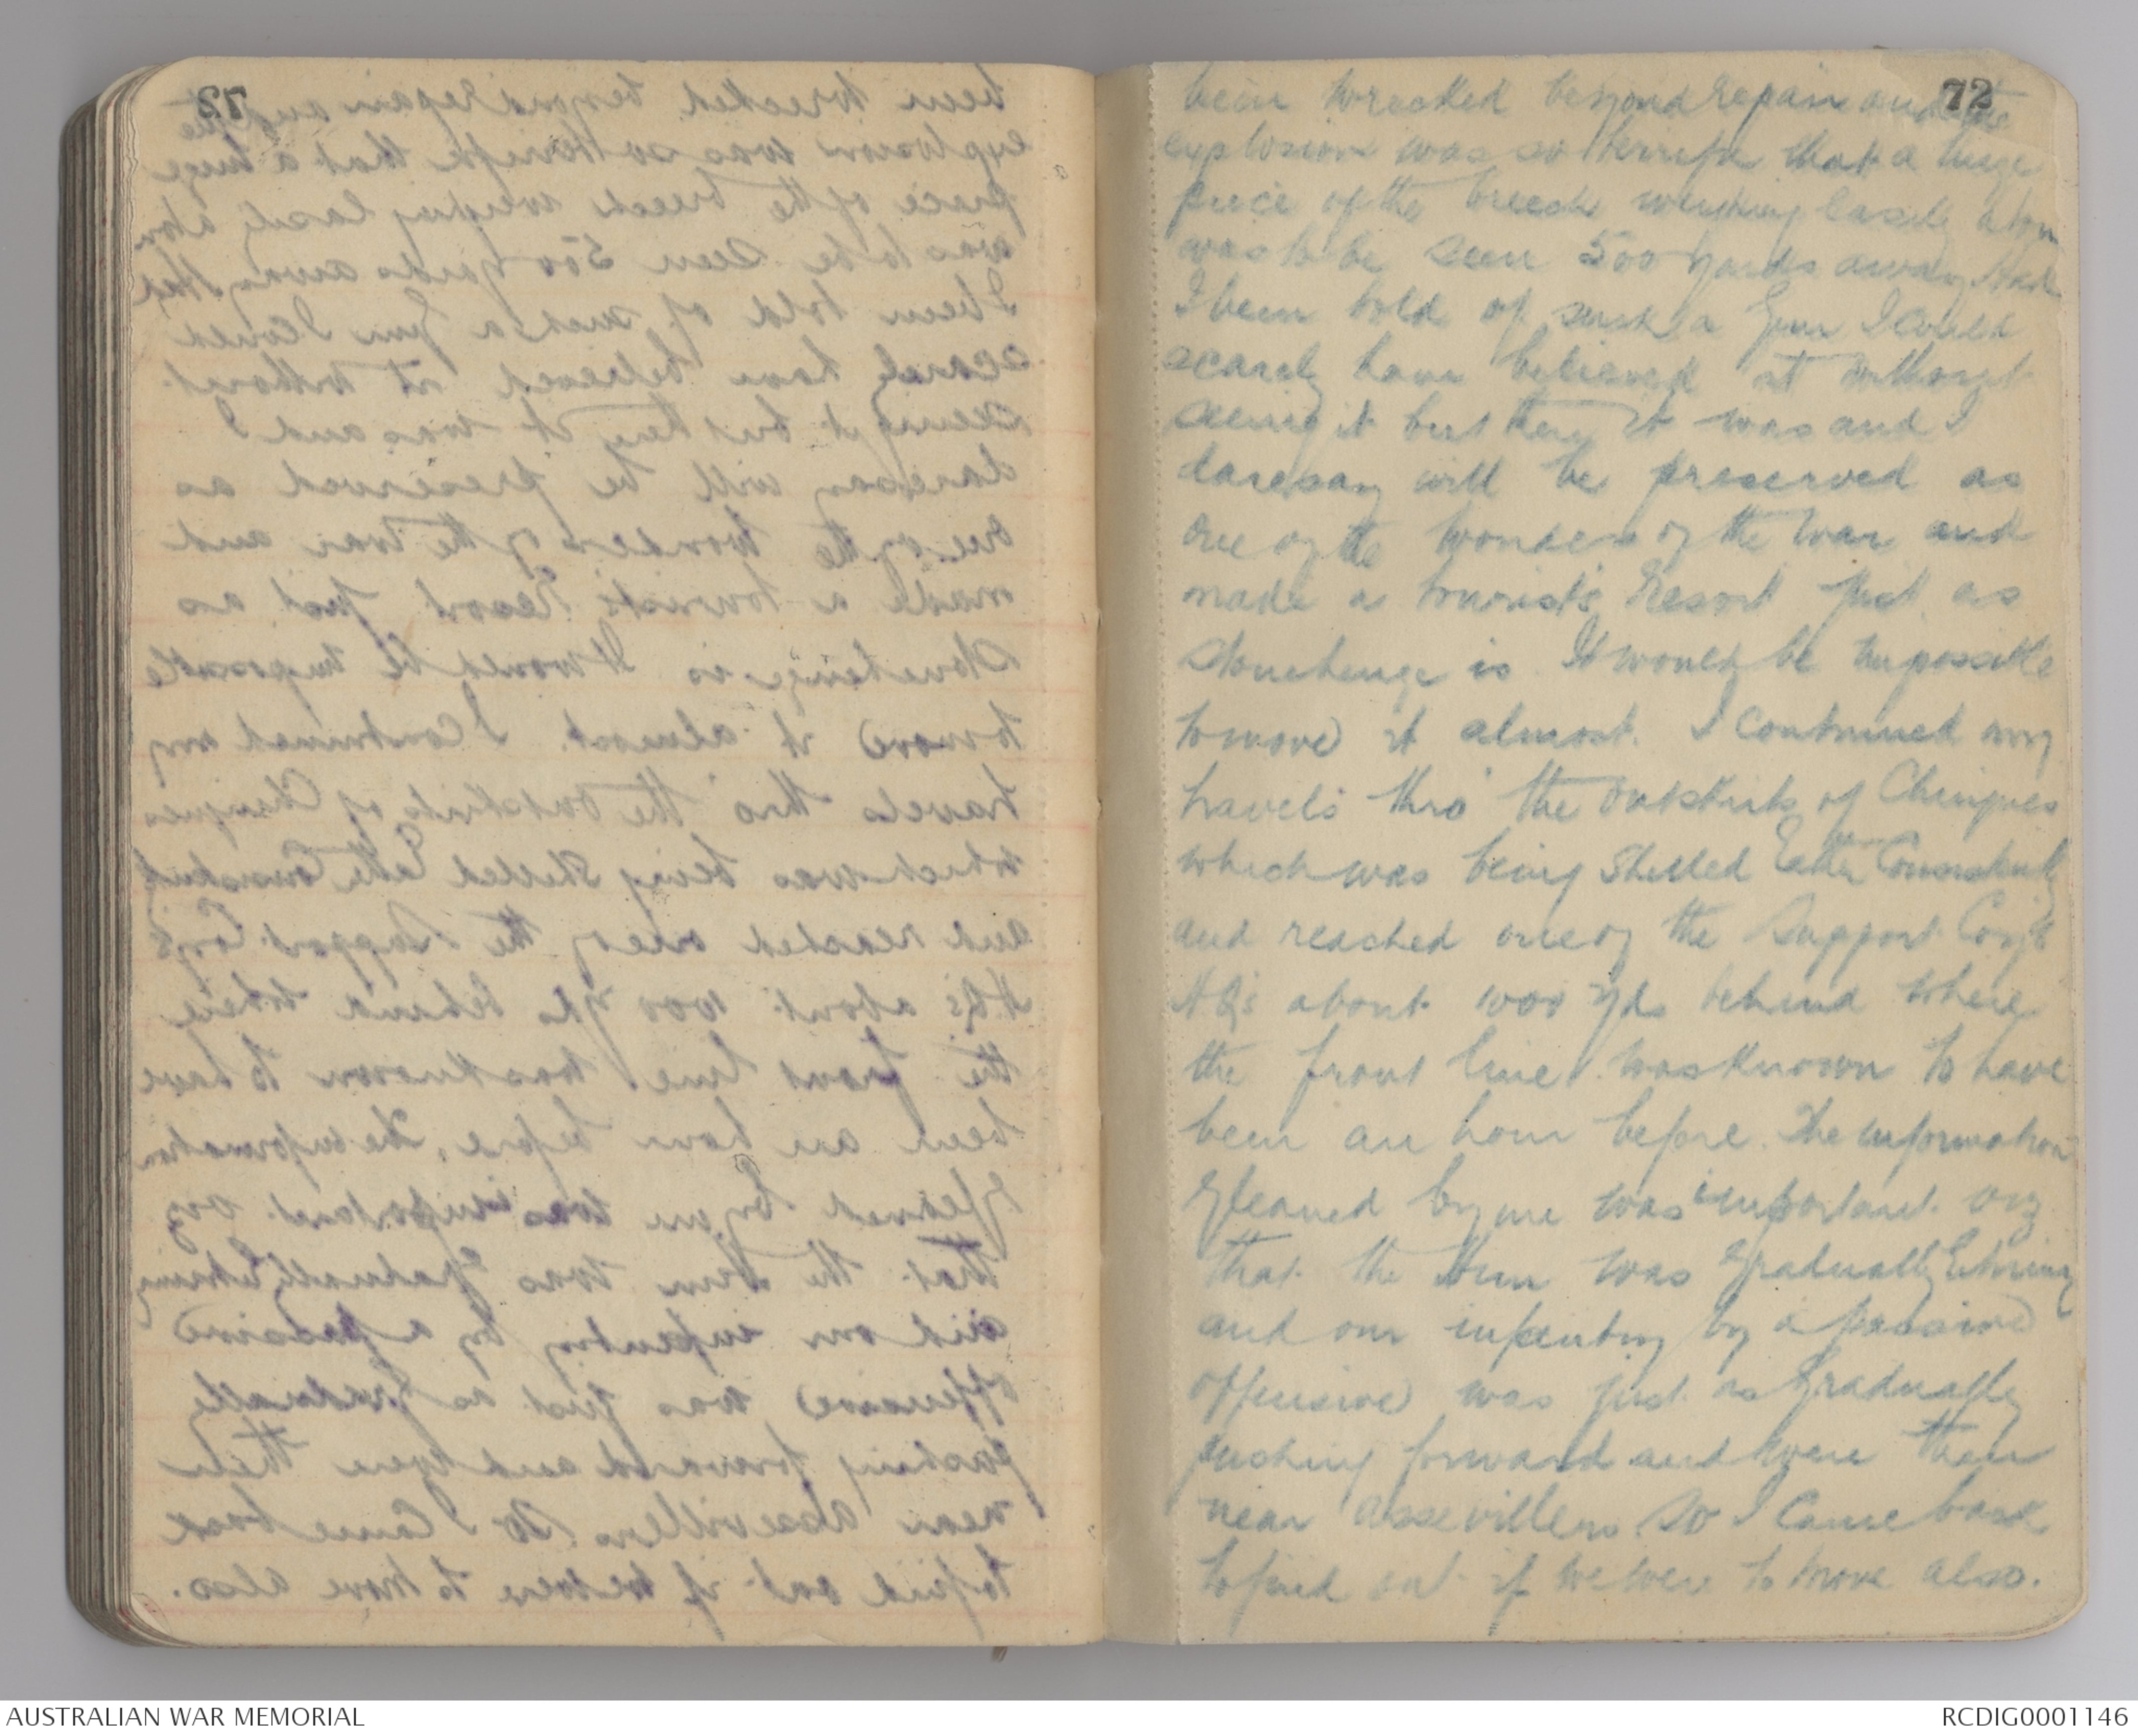 72
been wrecked beyond repair and the
explosion was so terrific that a huge
piece of the breech weighing easily a ton
was to be seen 500 yards away Had
I been told of such a gun I could
scarcly have believed it without
seeing it but there it was and I
daresay will be preserved as
one of the wonders of the war and
made a tourists Resort just as
Stonehenge is It would be impossible
to move it almost. I continued my
travels thro' the outskirts of Chuignes
which was being shelled Rather Consistently
and reached one of the Support Coy's
HQs about 1000 yds behind where
the front line was known to have
been an hour before. The information
gleaned by me was important viz
that the Hun was gradually Retiring
and our infantry by a passive
offensive was just as gradually
pushing forward and were then
near Assevillers So I Came back
to find out if we were to move also.
AUSTRALIAN WAR MEMORIAL
RCDIG0001146